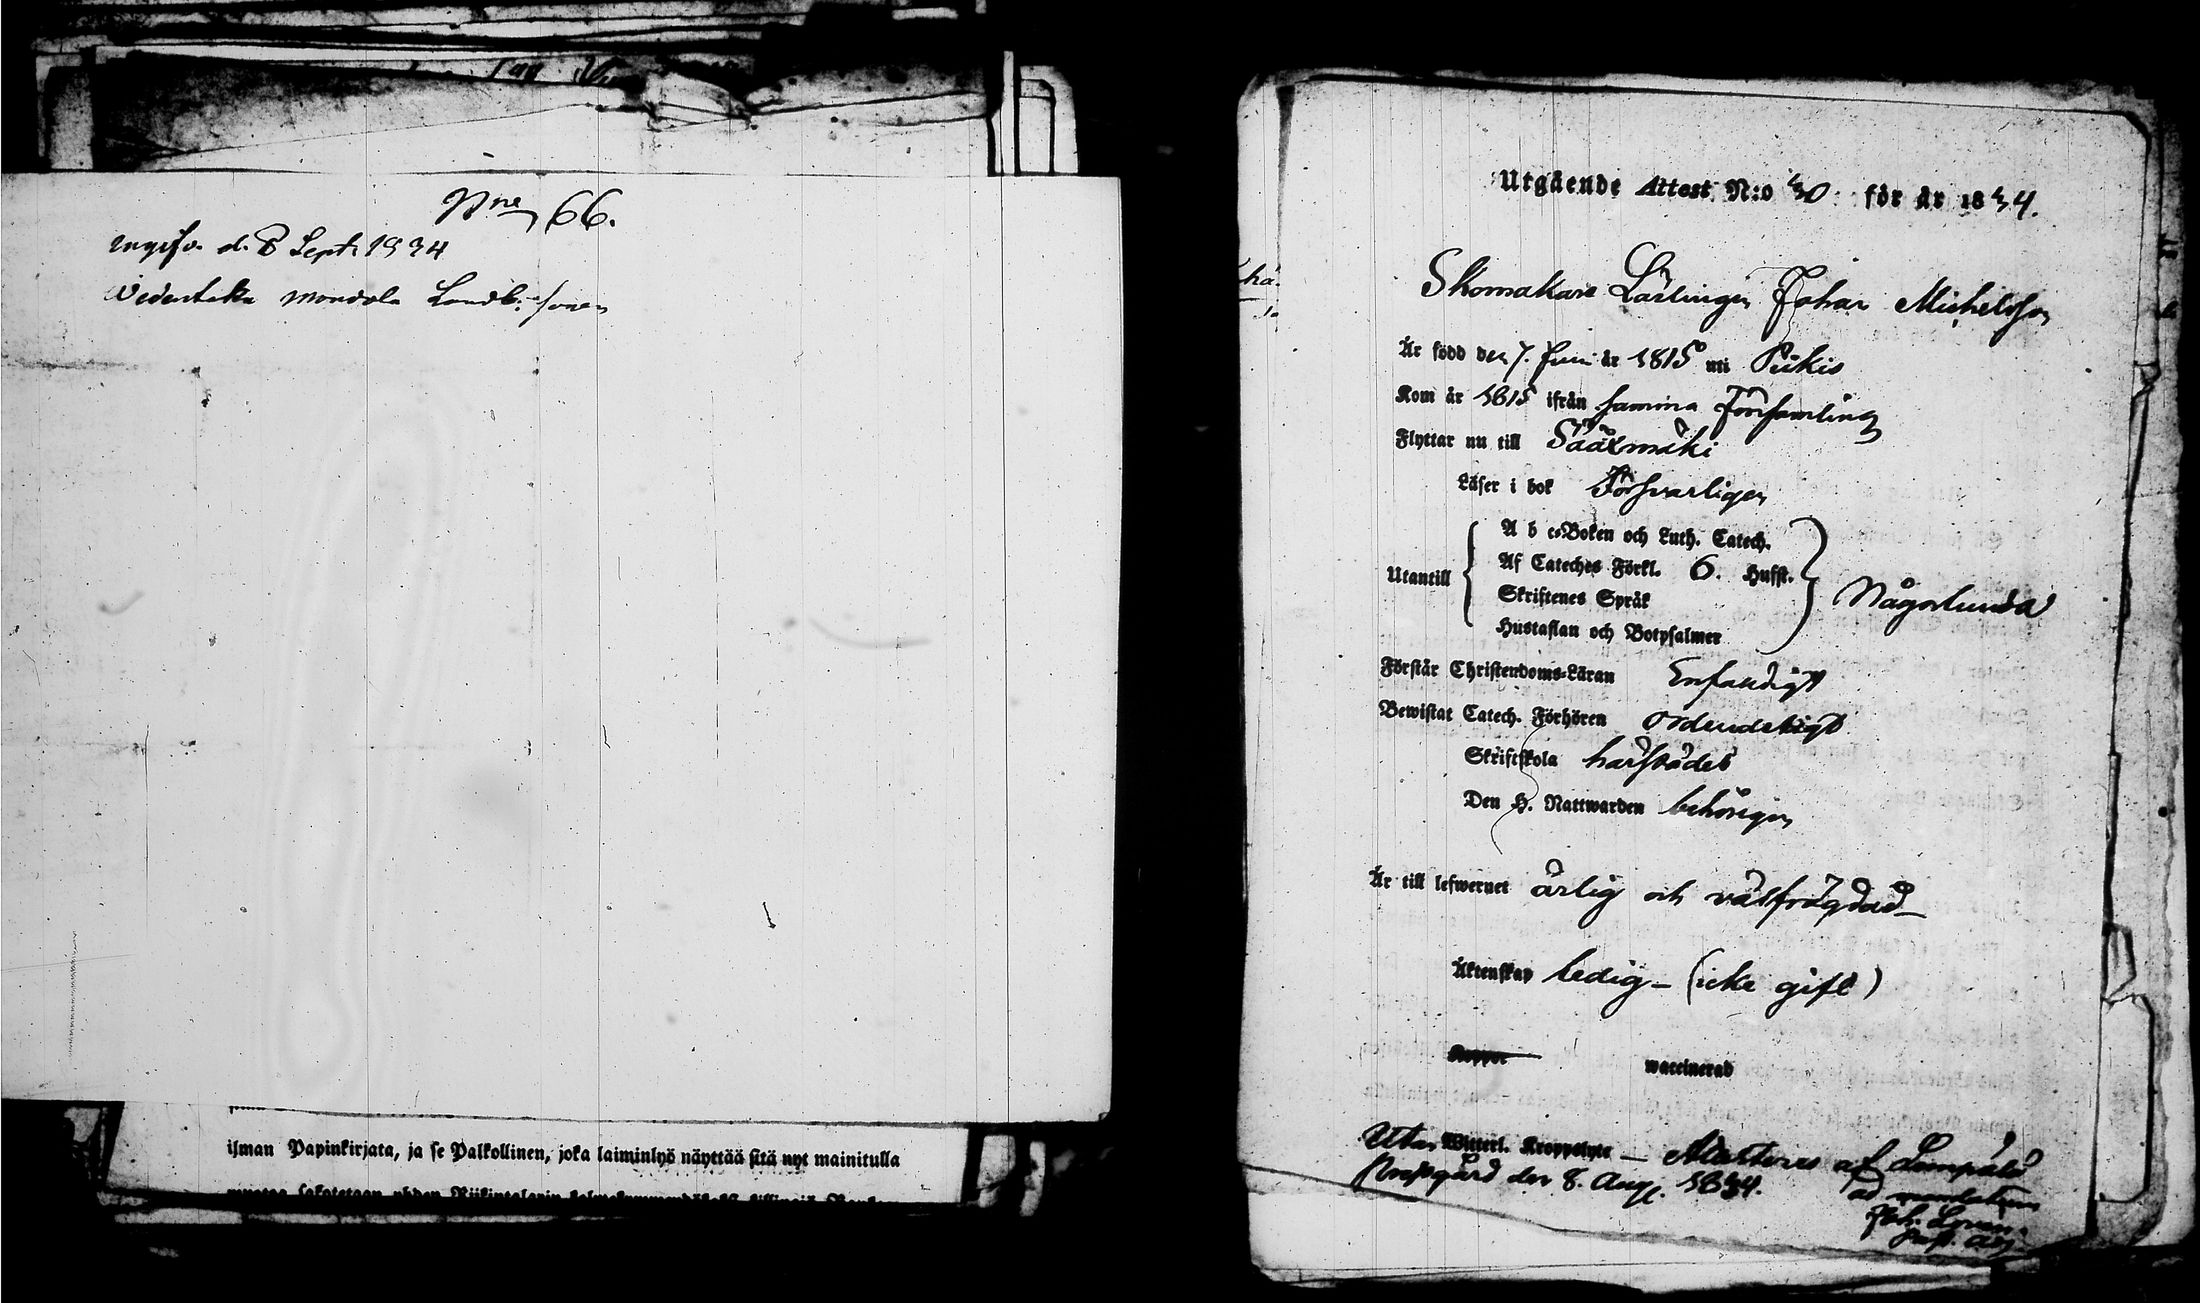 Nre 66.
ingifv. d. 8 Sept. 1834
ilman Papinkirjata, ja se Palkollinen, joka laiminlyö näyttää sitä nyt mainitulla
Utgående Attest N:o 30 för år 1834.
Skomakare Lärlingen Johan Michelsson
Är född den 7. Juni år 1815 uti Pükis
Kom år 1815 ifrån samma Församling
Flyttar nu till Sääxmäki
Läser i bok Försvarligen
A b c-Boken och Luth. Catech.
Af Cateches Förkl. 6. Hufst.
Utantill
Skriftenes Språk
Någorlunda
Hustaflan och Botpsalmer
Förstår Christendoms-Läran Enfaldigt
Bewistat Catech. Förhören ordendeligt
Skriftskola härstädes
Den H. Nattwarden behörigen
Är till lefwernet ärlig och välfrägdad
Äktenskap ledig – (icke gift)
Koppor waccinerad
Utan Witterl. Kroppslyte – Attesteras af Lempälä
Prestgård den 8. Aug. 1834.
ad mandatum
Joh.